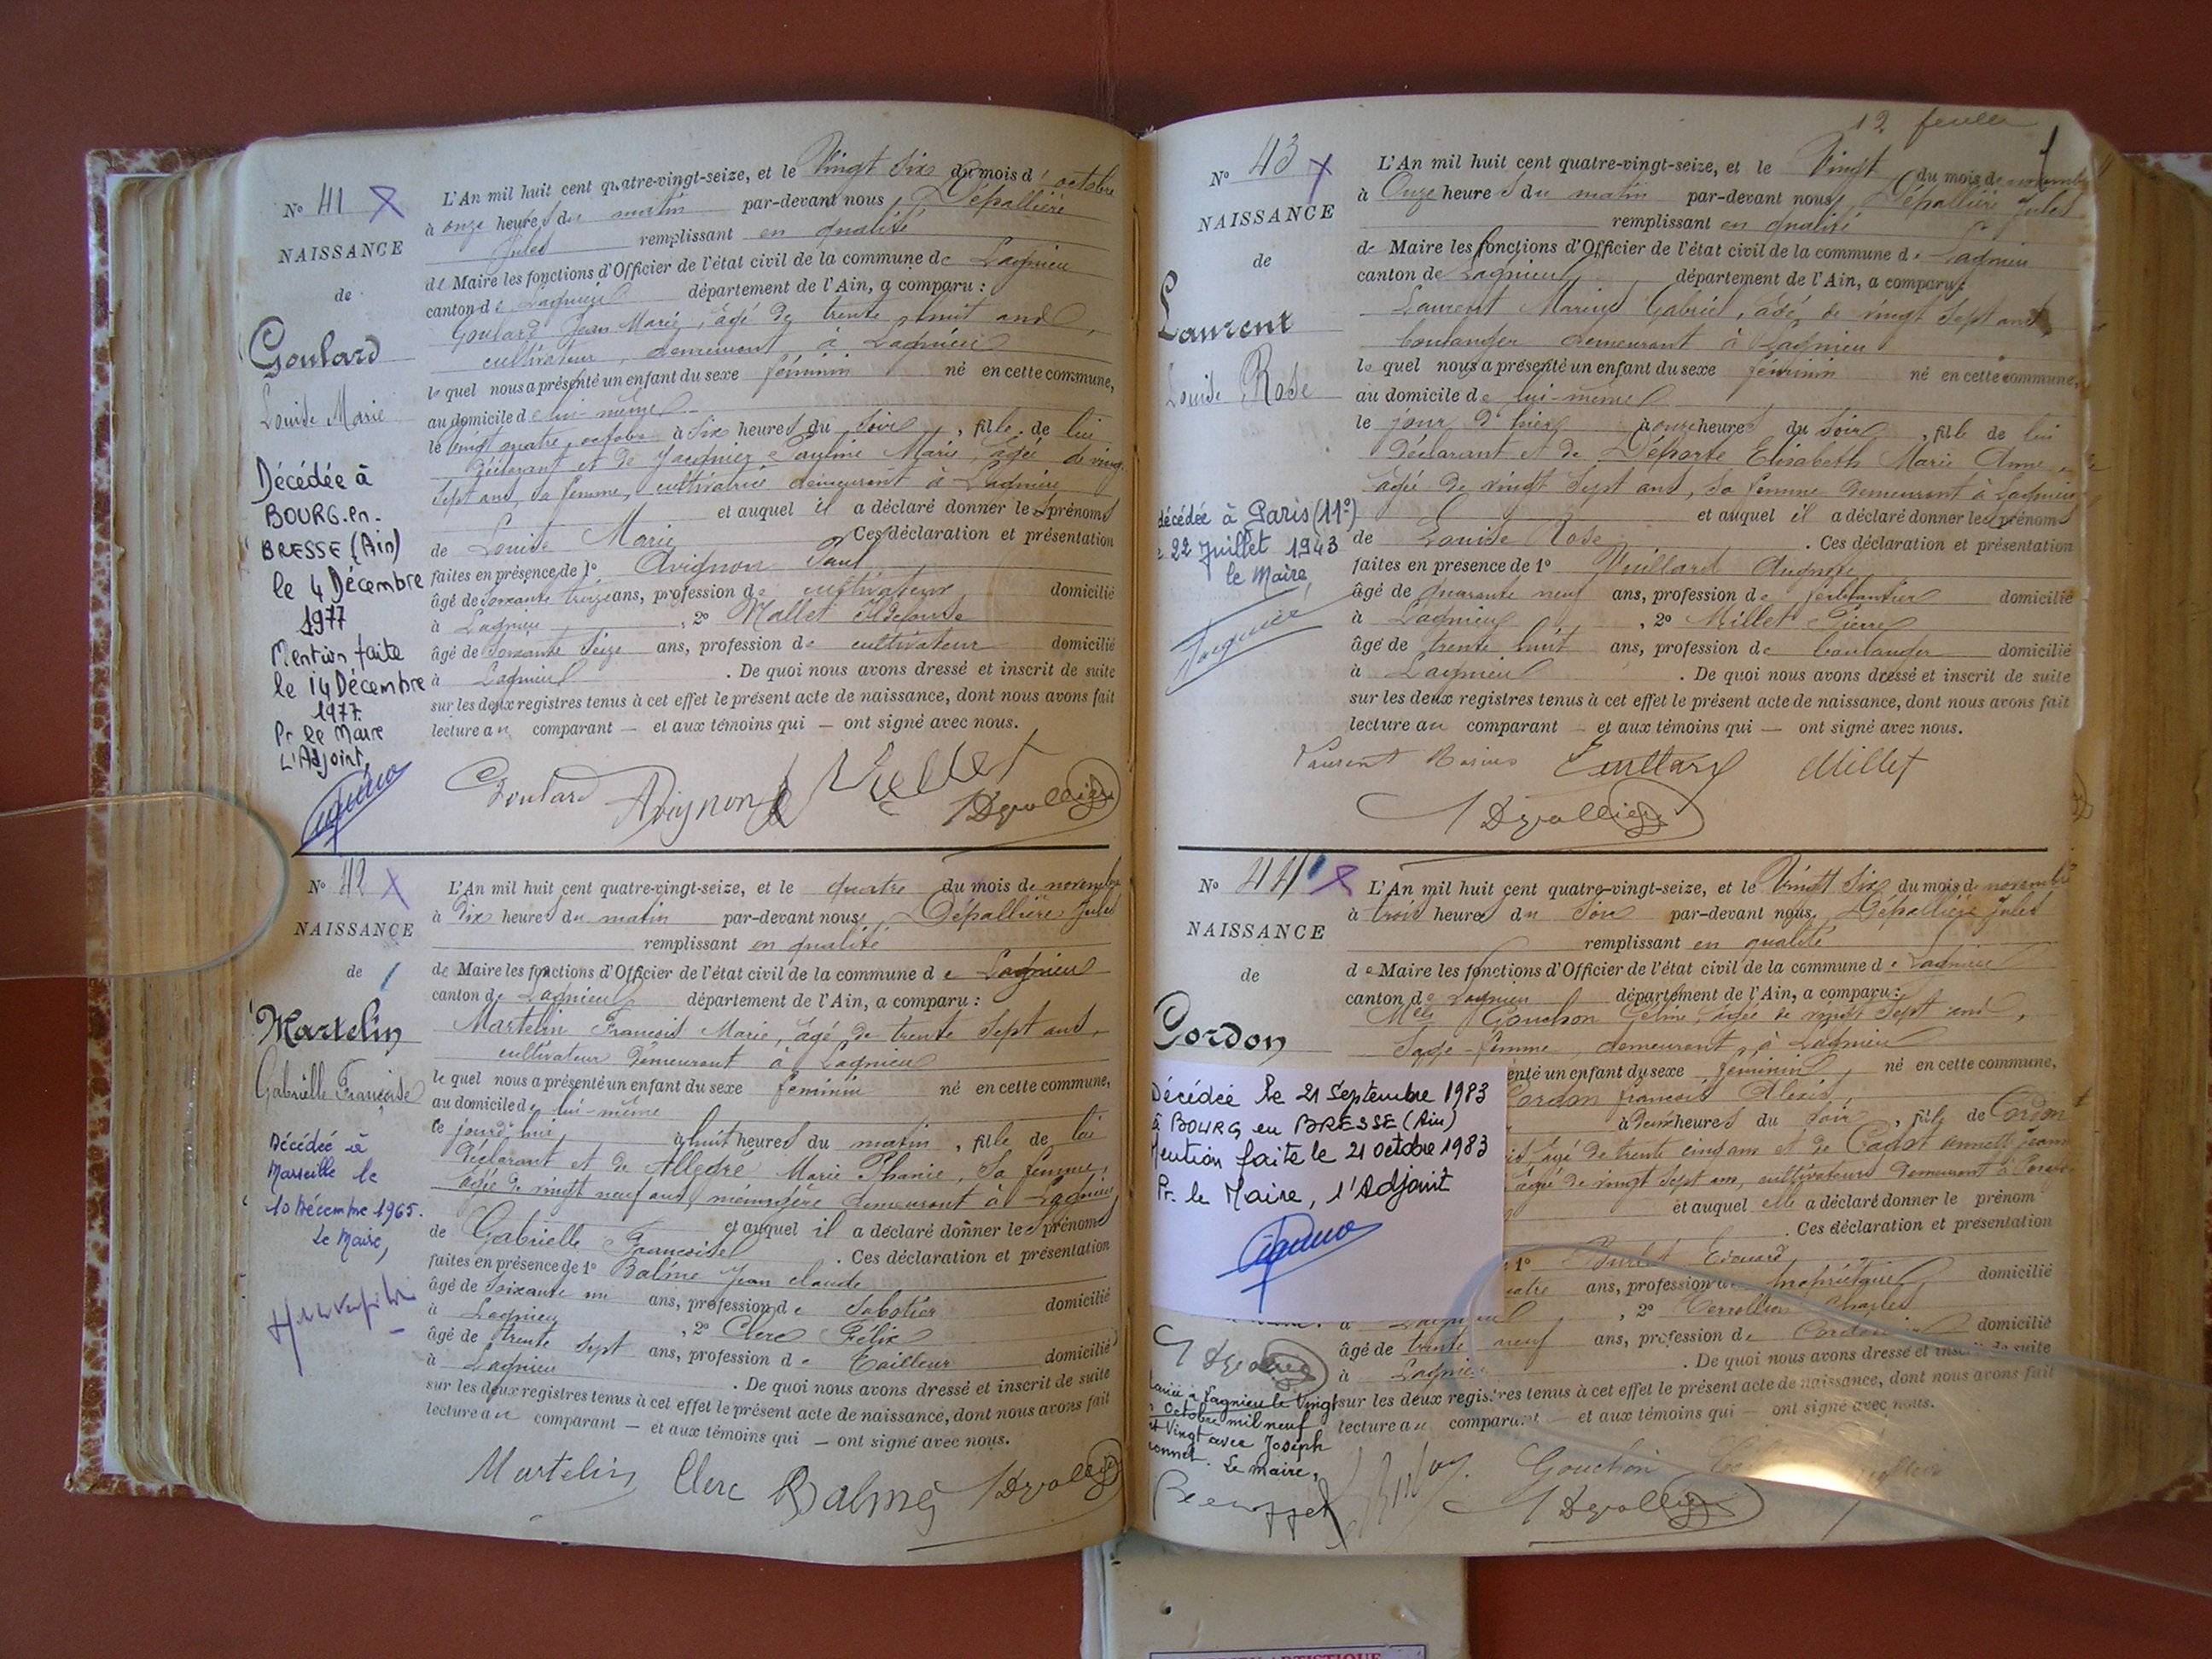 12 feuille
N° 41
NAISSANCE
de
Goulard
Louise Marie
Décédée à
BOURG-en-
BRESSE (Ain)
le 4 Décembre
1977
Mention faite
le 14 Décembre
1977.
Pr le Maire
L'Adjoint,
L'An mil huit cent quatre-vingt-seize, et le Vingt six du mois d'octobre
à onze heures du matin par-devant nous, Dépallière
Jules remplissant en qualité
de Maire les fonctions d'Officier de l'état civil de la commune de Lagnieu
canton de Lagnieu département de l'Ain, a comparu :
Goulard Jean Marie, âgé de trente huit ans,
cultivateur, demeurant à Lagnieu
lequel nous a présenté un enfant du sexe féminin né en cette commune,
au domicile de lui-même
le vingt quatre octobre à six heures du soir, fille de lui
déclarant et de Jacquier Pauline Marie, âgée de vingt
sept ans, sa femme, cultivatrice demeurant à Lagnieu
et auquel il a déclaré donner les prénoms
de Louise Marie Ces déclaration et présentation
faites en présence de 1° Avignon Paul
âgé de soixante treize ans, profession de cultivateur domicilié
à Lagnieu, 2° Mallet
âgé de soixante seize ans, profession de cultivateur domicilié
à Lagnieu. De quoi nous avons dressé et inscrit de suite
sur les deux registres tenus à cet effet le présent acte de naissance, dont nous avons fait
lecture au comparant — et aux témoins qui — ont signé avec nous.
Goulard Avignon
N° 42
NAISSANCE
de
Martelin
Gabrielle Françoise
Décédée à
Marseille le
10 Décembre 1965.
Le Maire,
L'An mil huit cent quatre-vingt-seize, et le quatre du mois de novembre
à dix heures du matin par-devant nous, Dépallière Jules
remplissant en qualité
de Maire les fonctions d'Officier de l'état civil de la commune de Lagnieu
canton de Lagnieu département de l'Ain, a comparu :
Martelin François Marie, âgé de trente sept ans,
cultivateur demeurant à Lagnieu
lequel nous a présenté un enfant du sexe féminin né en cette commune,
au domicile de lui-même
le jourd'hui à huit heures du matin, fille de lui
déclarant et de Allegré Marie Phanie, sa femme,
âgée de vingt neuf ans, ménagère demeurant à Lagnieu
et auquel il a déclaré donner les prénoms
de Gabrielle Françoise. Ces déclaration et présentation
faites en présence de 1° Balme Jean Claude
âgé de soixante un ans, profession de sabotier domicilié
à Lagnieu, 2° Clerc Félix
âgé de trente sept ans, profession de Tailleur domicilié
à Lagnieu. De quoi nous avons dressé et inscrit de suite
sur les deux registres tenus à cet effet le présent acte de naissance, dont nous avons fait
lecture au comparant — et aux témoins qui — ont signé avec nous.
Martelin Clerc Balme
N° 43
NAISSANCE
de
Laurent
Louise Rose
décédée à Paris (11e)
22 Juillet 1943
le Maire,
L'An mil huit cent quatre-vingt-seize, et le Vingt du mois de novembre
à Onze heures du matin par-devant nous, Dépallière Jules
remplissant en qualité
de Maire les fonctions d'Officier de l'état civil de la commune de Lagnieu
canton de Lagnieu, département de l'Ain, a comparu :
Laurent Marius Gabriel, âgé de vingt sept ans
boulanger demeurant à Lagnieu
lequel nous a présenté un enfant du sexe féminin né en cette commune,
au domicile de lui-même
le jour d'hier à onze heures du soir, fille de lui
déclarant et de Déporte Elisabeth Marie Anne
âgée de vingt sept ans, sa femme demeurant à Lagnieu
et auquel il a déclaré donner les prénoms
de Louise Rose. Ces déclaration et présentation
faites en présence de 1° Vuillard Auguste
âgé de quarante neuf ans, profession de ferblantier domicilié
à Lagnieu, 2° Millet Pierre
âgé de trente huit ans, profession de boulanger domicilié
à Lagnieu. De quoi nous avons dressé et inscrit de suite
sur les deux registres tenus à cet effet le présent acte de naissance, dont nous avons fait
lecture au comparant — et aux témoins qui — ont signé avec nous.
Laurent Marius Vuillard Millet
N° 44
NAISSANCE
de
Cordon
Décédée le 21 Septembre 1983
à BOURG en BRESSE (Ain)
Mention faite le 21 octobre 1983
Pr. le Maire, l'Adjoint
à Lagnieu le Vingt
Octobre mil neuf
Vingt avec Joseph
Le maire,
L'An mil huit cent quatre-vingt-seize, et le Vingt six du mois de novembre
à trois heures du soir par-devant nous, Dépallière Jules
remplissant en qualité
de Maire les fonctions d'Officier de l'état civil de la commune de Lagnieu
canton de Lagnieu département de l'Ain, a comparu :
Gouchon âgée de vingt sept ans,
sage-femme, demeurant à Lagnieu
enté un enfant du sexe féminin, né en cette commune,
Cordon françois Alexis
à deux heures du soir, fille de Cordon
âgé de trente cinq ans et de
âgée de vingt sept ans, cultivateurs demeurant à
et auquel elle a déclaré donner le prénom
. Ces déclaration et présentation
1° Edouard
ans, profession de propriétaire domicilié
à Lagnieu, 2° Charles
âgé de trente neuf ans, profession de Cordonnier domicilié
à Lagnieu. De quoi nous avons dressé et inscrit de suite
sur les deux registres tenus à cet effet le présent acte de naissance, dont nous avons fait
lecture au comparant — et aux témoins qui — ont signé avec nous.
Gouchon